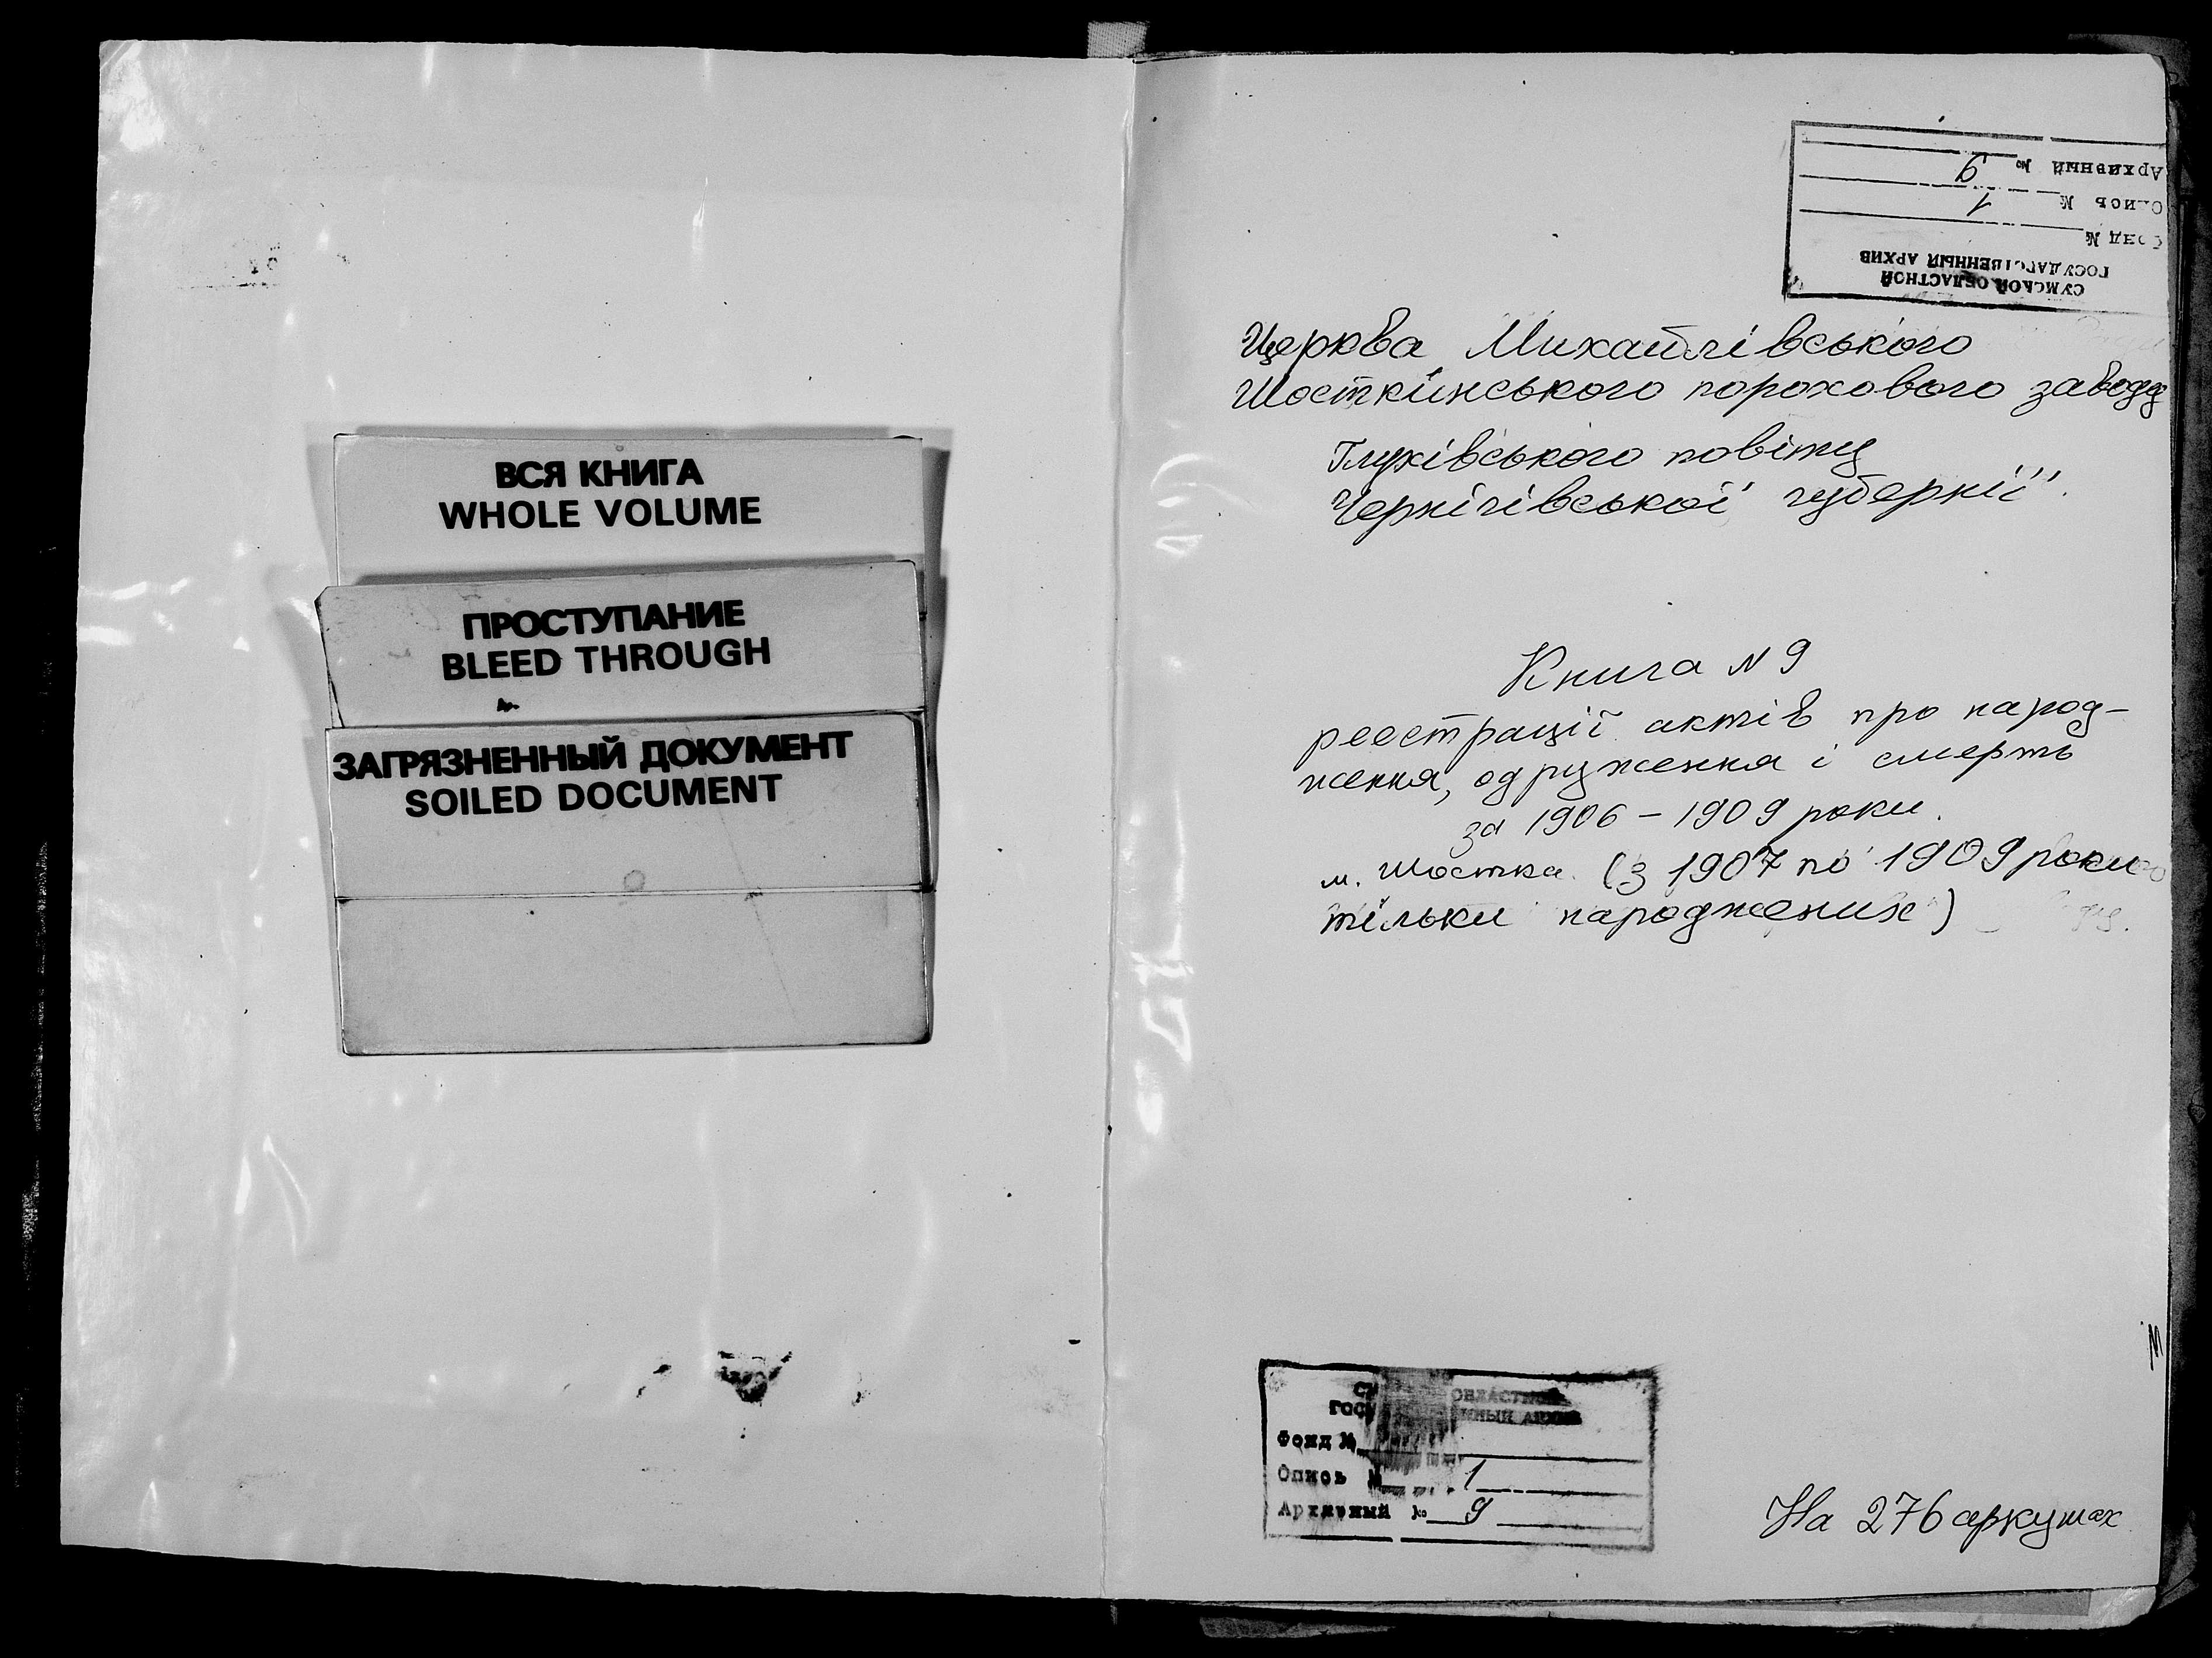 ВСЯ КНИГА
WHOLE VOLUME
ПРОСТУПАНИЕ
BLEED THROUGH
ЗАГРЯЗНЕННЫЙ ДОКУМЕНТ
SOILED DOCUMENT
СУМСКОЙ ОБЛАСТНОЙ
ГОСУДАРСТВЕННЫЙ АРХИВ
Фонд №
Опись № 1
Архивный № 9
Церква Михайлівського
Шосткинського порохового заводу
Глухівського повіту
Чернігівської губернії.
Книга № 9
реєстрації актів про народ-
ження, одруження і смерть
за 1906 – 1909 роки.
м. Шостка. (з 1907 по 1909 роки
тільки народжених)
ОБЛАСТНОЙ
АРХИВ
Фонд №
Опись № 1
Архивный № 9
На 276 аркушах